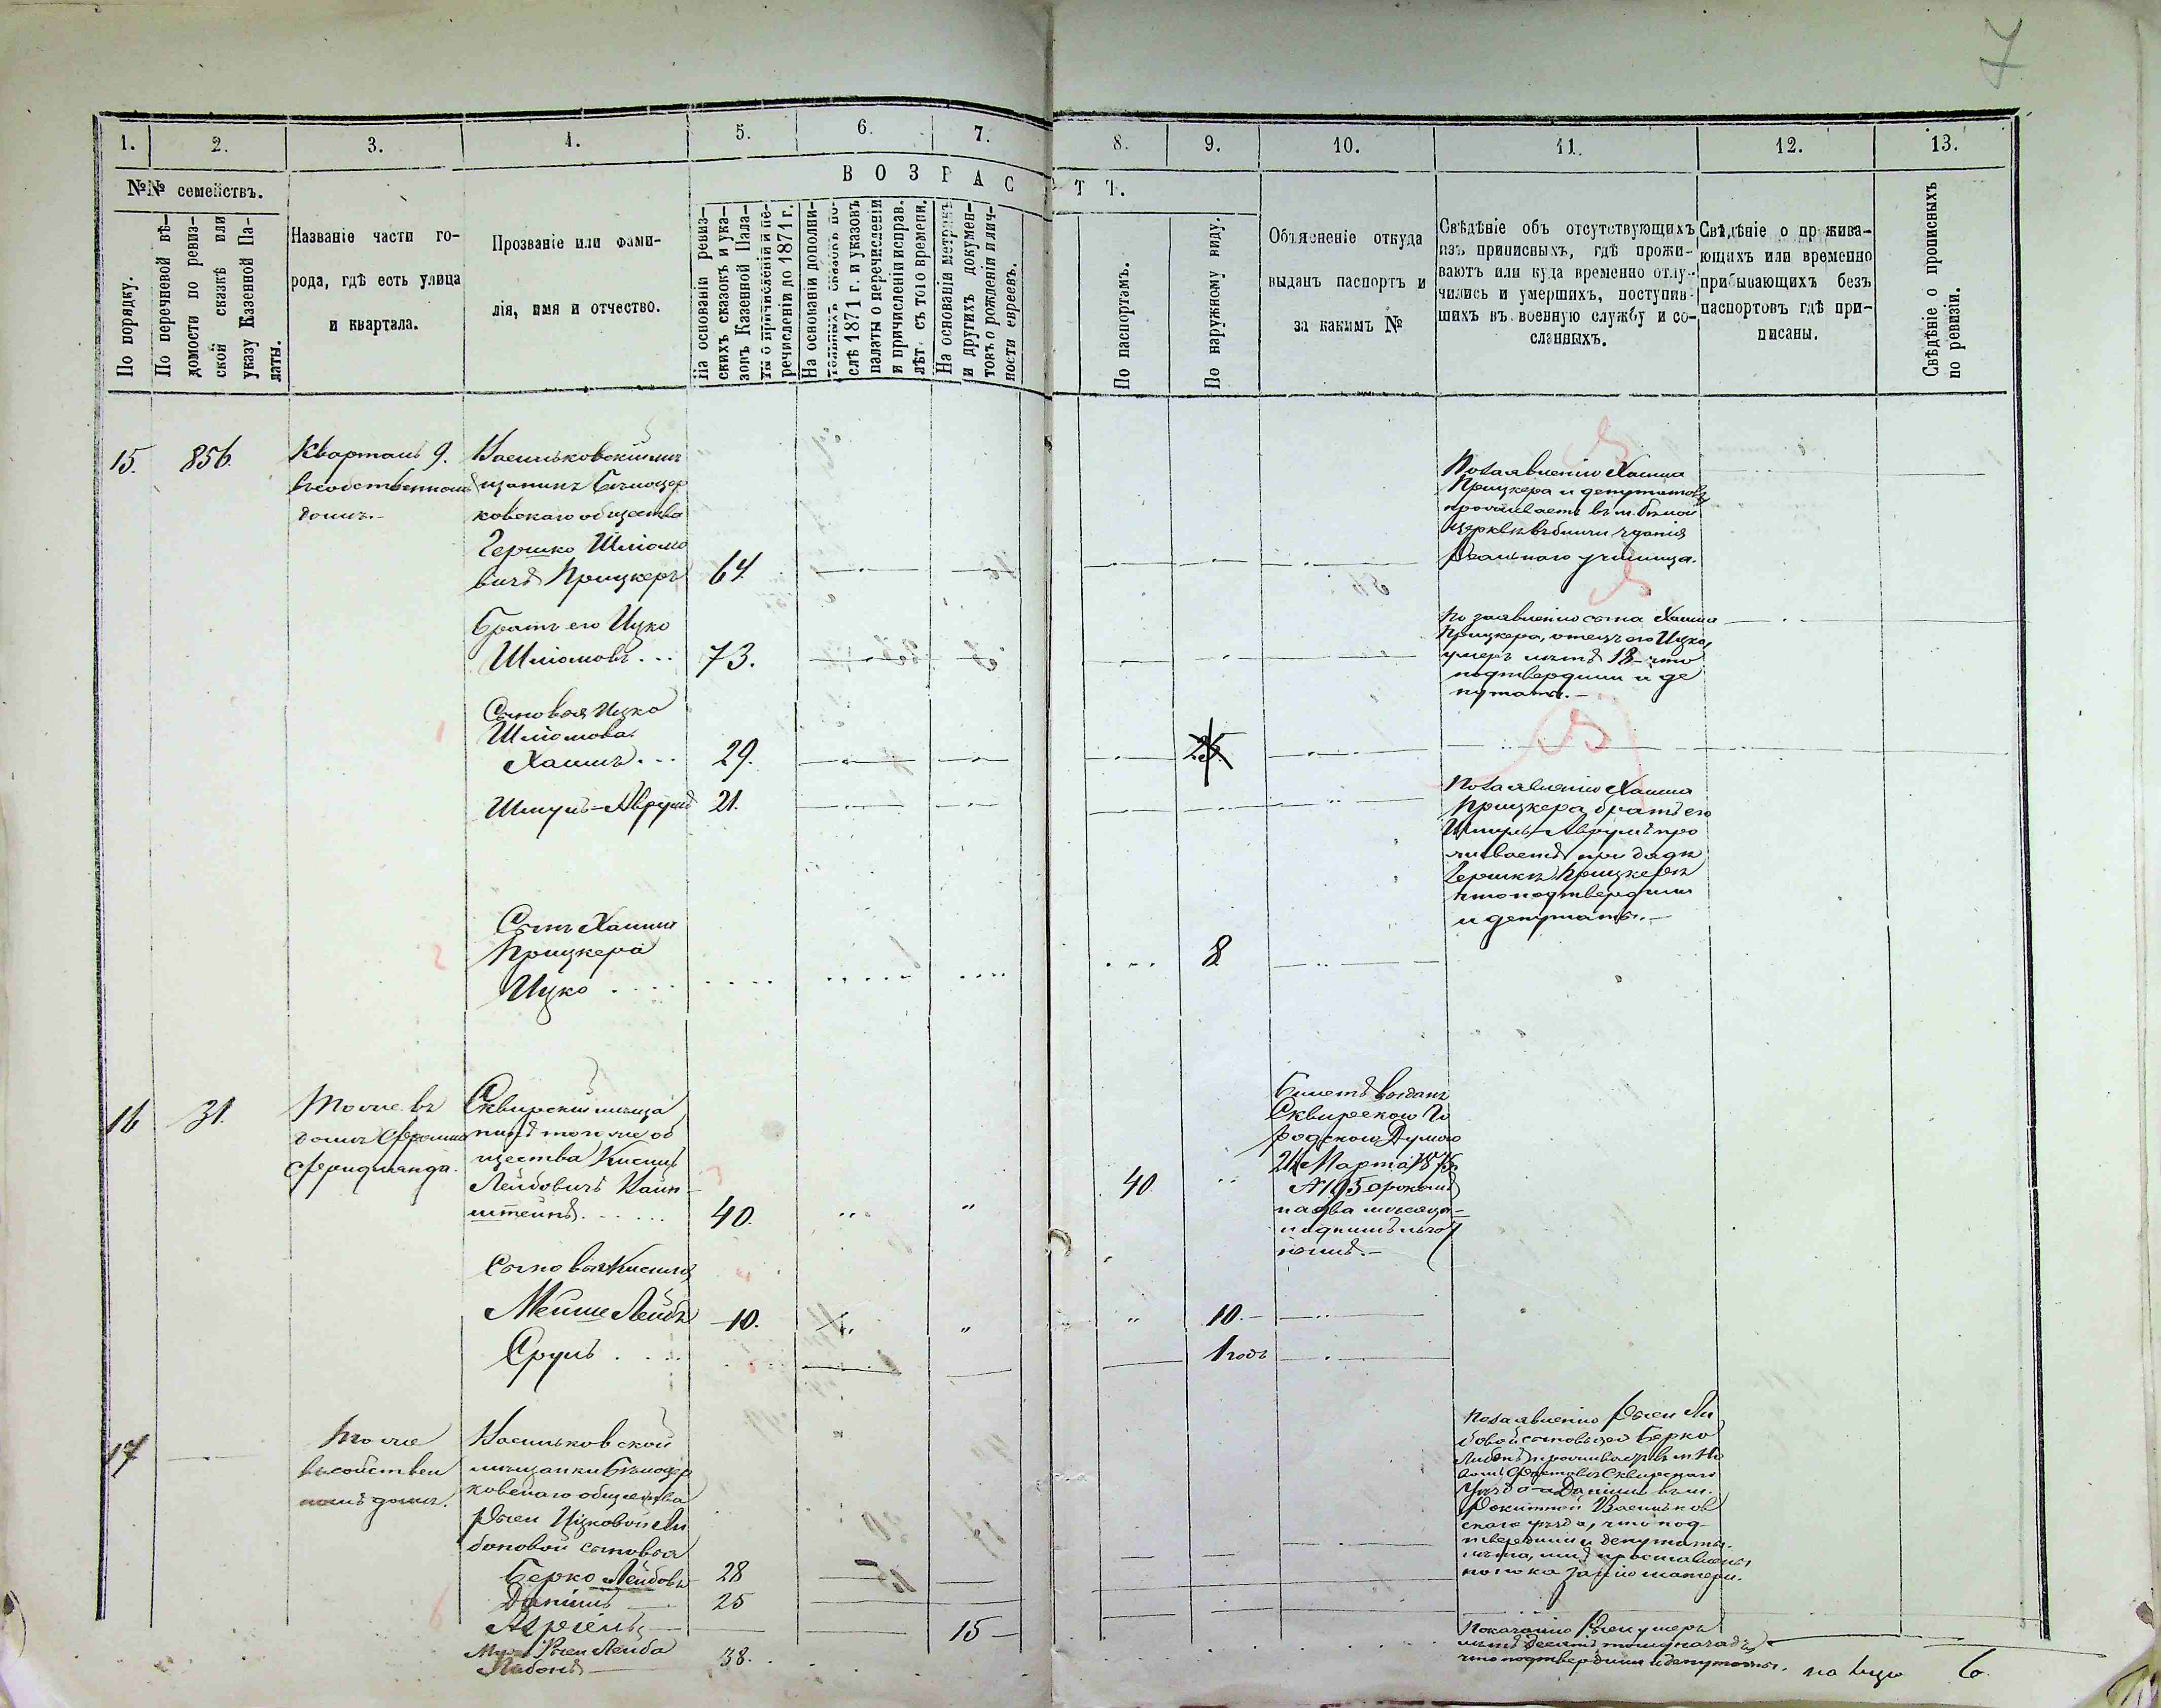 7
1. 2. 3. 4. 5. 6. 7. 8. 9. 10. 11. 12. 13.
№№ семействъ.
По порядку.
По перечневой вѣ-
домости по ревиз-
ской сказкѣ или
указу Казенной Па-
латы.
Названіе части го-
рода, гдѣ есть улица
и квартала.
Прозваніе или фами-
лія, имя и отчество.
ВОЗРАСТЪ.
На основаніи ревиз-
скихъ сказокъ и ука-
зовъ Казенной Пала-
ты о причисленіи и пе-
речисленіи до 1871 г.
На основаніи дополни-
тельныхъ сказокъ по-
слѣ 1871 г. и указовъ
палаты о перечисленіи
и причисленіи исправ.
лѣт. съ того времени.
На основаніи метрикъ
и другихъ докумен-
товъ о рожденіи и лич-
ности евреевъ.
По паспортамъ.
По наружному виду.
Объясненіе откуда
выданъ паспортъ и
за какимъ №
Свѣдѣніе объ отсутствующихъ
изъ приписныхъ, гдѣ прожи-
ваютъ или куда временно отлу-
чились и умершихъ, поступив-
шихъ въ военную службу и со-
сланныхъ.
Свѣдѣніе о прожива-
ющихъ или временно
прибывающихъ безъ
паспортовъ гдѣ при-
писаны.
Свѣдѣніе о прописныхъ
по ревизіи.
15. 856.
Кварталъ 9.
въ собственномъ
домѣ.
Васильковскій мѣ
щанинъ Бѣлоцер
ковскаго общества
Гершко Шліомо
вичъ Прицкеръ 64.
По заявленію Хаима
Прицкера и депутатовъ
проживаетъ въ м. Бѣлой
Церкви вблизи зданія
Реальнаго училища.
Братъ его Ицко
Шліомовъ... 73.
По заявленію сына Хаима
Прицкера, отецъ его Ицко,
умеръ лѣтъ 18 - что
подтвердили и де
путаты.-
Сыновья Ицка
Шліомова
Хаимъ... 29. 25.
Шмуль-Аврумъ 21.
По заявленію Хаима
Прицкера братъ его
Шмуль-Аврумъ про
живаетъ при дядѣ
Гершкѣ Прицкерѣ
что подтвердили
и депутаты.-
Сынъ Хаима
Прицкера
Ицко .... 8.
16 31.
Тоже въ
домѣ Фроима
Фридланда.
Сквирскій мѣща
нинъ того же об
щества Кисиль
Лейбовичъ Вайн-
штейнъ...... 40. 40
Билетъ выданъ
Сквирскою Го
родскою Думою
24 Марта 1875
№ 195 срокомъ
на два мѣсяца
Сыновья Кисиля
Мейше Лейбъ 10. 10.-
Сруль.... 1 годъ
17
Тоже
въ собствен
номъ домѣ.
Васильковской
мѣщанки Бѣлоцер
ковскаго общества
Рыси Ицковой Ли
боновой сыновья
Берко Лейбовъ 28
Данiилъ 25
15-
Мужъ Рыси Лейба
Либонъ 38.
По заявленію Рыси Ли
боновой сыновья ея Берко
Сквирскаго
уѣзда а Данiилъ въ м.
Рокитной Васильков
скаго уѣзда, что под
твердили и депутаты.
По показанію Рыси умеръ
лѣтъ десять тому назадъ
что подтвердили и депутаты.
на лицо 6.